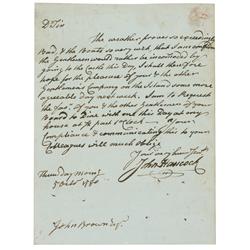 D Sir
The weather proves so exceeding
Bad, & the Boats so very wet, that I am confident
the Gentlemen would rather be incommoded by
going to the Castle this Day, I shall therefore
hope for the pleasure of yours & the other
Gentlemen's Company on the Island some more
agreeable day next week. I am to Request
the favr. of you & the other Gentlemen of your
Board to Dine with me this Day at my
house at past 1 o'Clock. If your
Compliance & communicating this to your
Colleagues will much oblige
Your very hum Servt
John Hancock
Thursday Morng
5 Octor 1780
John Brown Esq